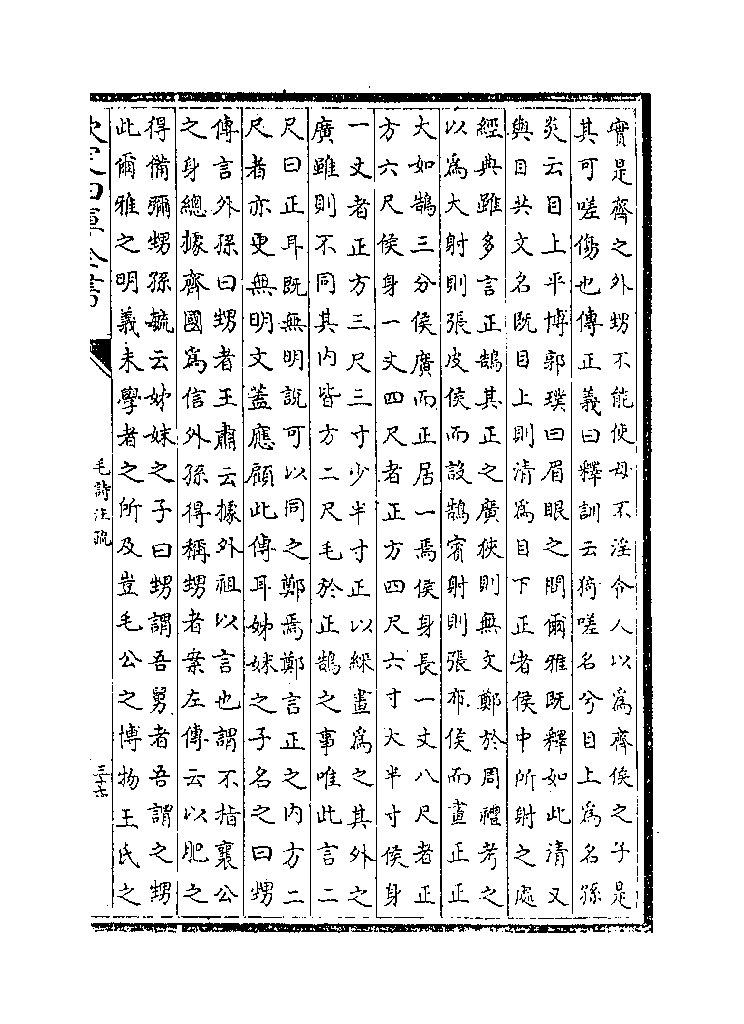 實是齊之外甥不能使母不淫令人以為齊侯之子是
其可嗟傷也傳正義曰釋訓云猗嗟名兮目上為名孫
炎云目上平博郭璞曰眉眼之間爾雅既釋如此清又
與目共文名既目上則清為目下正者侯中所射之處
經典雖多言正鵠其正之廣狹則無文鄭於周禮考之
以為大射則張皮侯而設鵠賓射則張布侯而畫正正
大如鵠三分侯廣而正居一焉侯身長一丈八尺者正
方六尺侯身一丈四尺者正方四尺六寸大半寸侯身
一丈者正方三尺三寸少半寸正以綵畫為之其外之
廣雖則不同其内皆方二尺毛於正鵠之事唯此言二
尺曰正耳既無明說可以同之鄭焉鄭言正之内方二
尺者亦更無明文蓋應顧此傳耳姊妹之子名之曰甥
傳言外孫曰甥者王肅云據外祖以言也謂不指襄公
之身總據齊國為信外孫得稱甥者案左傳云以肥之
得備彌甥孫毓云姊妹之子曰甥謂吾舅者吾謂之甥
此爾雅之明義未學者之所及豈毛公之博物王氏之
欽定四庫全書
毛詩注疏